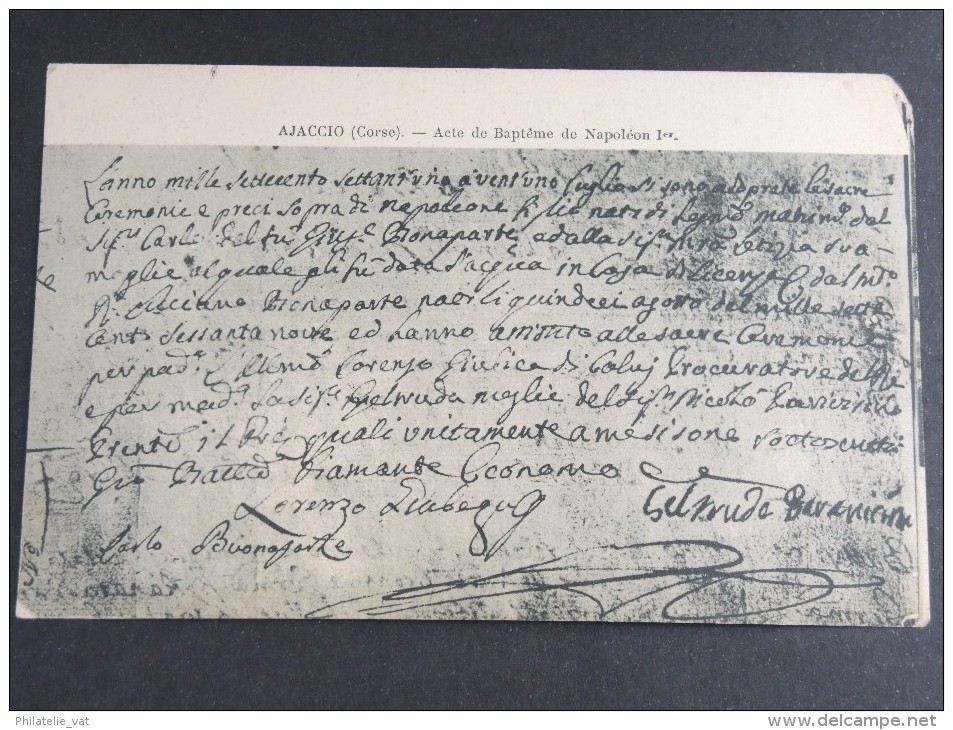 AJACCIO (Corse). — Acte de Baptême de Napoléon Ier.
L'anno mille settecento settant'uno a vent'uno luglio si sono adoprate le sacre
Ceremonie e preci sopra di napoleone figlio nato di legmo matrimo dal
Sigre Carlo del fu Giuse Bonaparte ed dalla Sigra Letizia sua
moglie al quale gli fu data l'acqua in Casa di licenza dal
Luciano Bonaparte nato li quindeci agosto del mille sette
cento sessanta nove ed hanno assistito alle sacre Ceremonie
per pado l'illmo Lorenzo Giubica di Calvi Procuratore del Re
e per mada la Sigra Geltrude moglie del Sigr Nicolo Paravicini
Presente il Pre quali unitamente a me si sono sottoscritti
Gio Batta Diamante Economo
Lorenzo Giubega
Geltrude Paravicini
Carlo Buonaparte
Philatelie_vat
www.delcampe.net